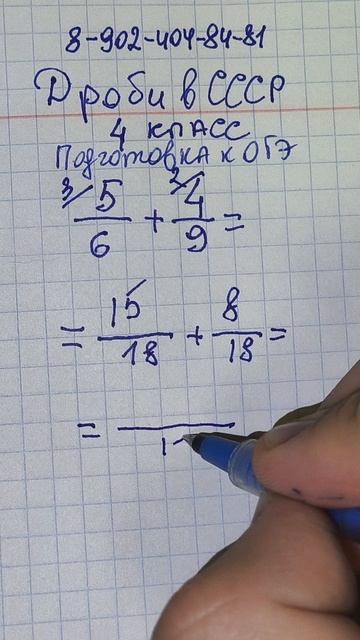 8-902-404-84-81
Дроби в СССР
4 класс
Подготовка к ОГЭ
3/ 5/6 + 2/ 4/9 =
= 15/18 + 8/18 =
=